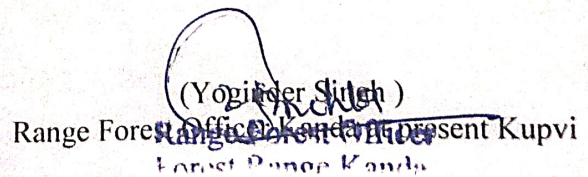 (Yoginder Singh )
Range Forest Officer, Kanda at present Kupvi
Range Forest Officer
Forest Range Kanda